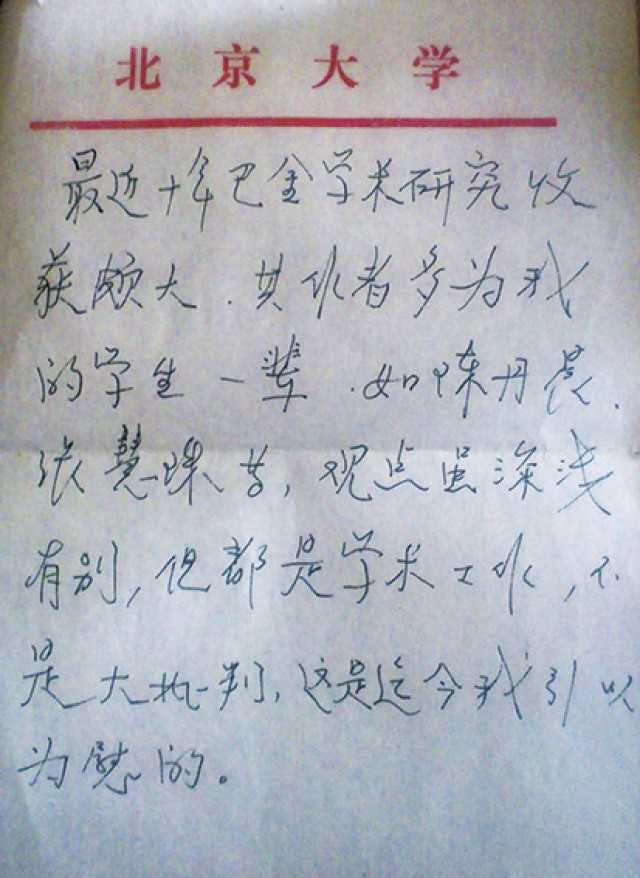 北京大学
最近十年巴金学术研究收
获颇大.其作者多为我
的学生一辈.如陈丹晨、
张慧珠等,观点虽深浅
有别,但都是学术工作,不
是大批判,这是迄今我引以
为慰的。